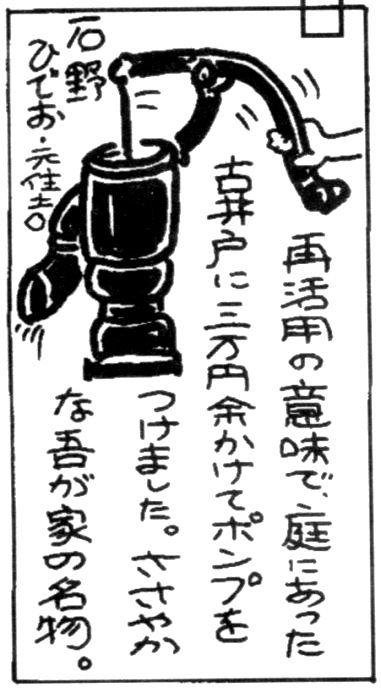 再活用の意味で、庭にあった
古井戸に三万円余かけてポンプを
つけました。ささやか
な吾が家の名物。
石野
ひでお・元住吉